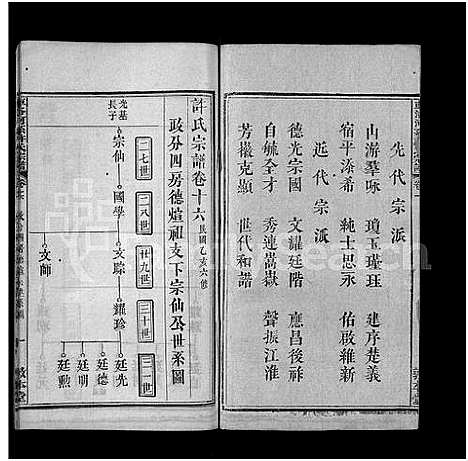 先代宗派
山瀚羣咏　瓊玉瑾珏　建序楚義
宿平添希　純士思永　佑啟維新
近代宗派
德光宗國　文耀廷階　應昌後祚
自毓全才　秀連嵩嶽　聲振江淮
芳擬克顯　世代和諧
許氏宗譜卷十六民國乙亥六修
政分四房德煊祖支下宗仙公世系圖
二七世　二八世　廿九世　三十世　三一世
光基長子　宗仙　國學　文踪　耀珍　廷先
廷德
廷明
廷勳
文師